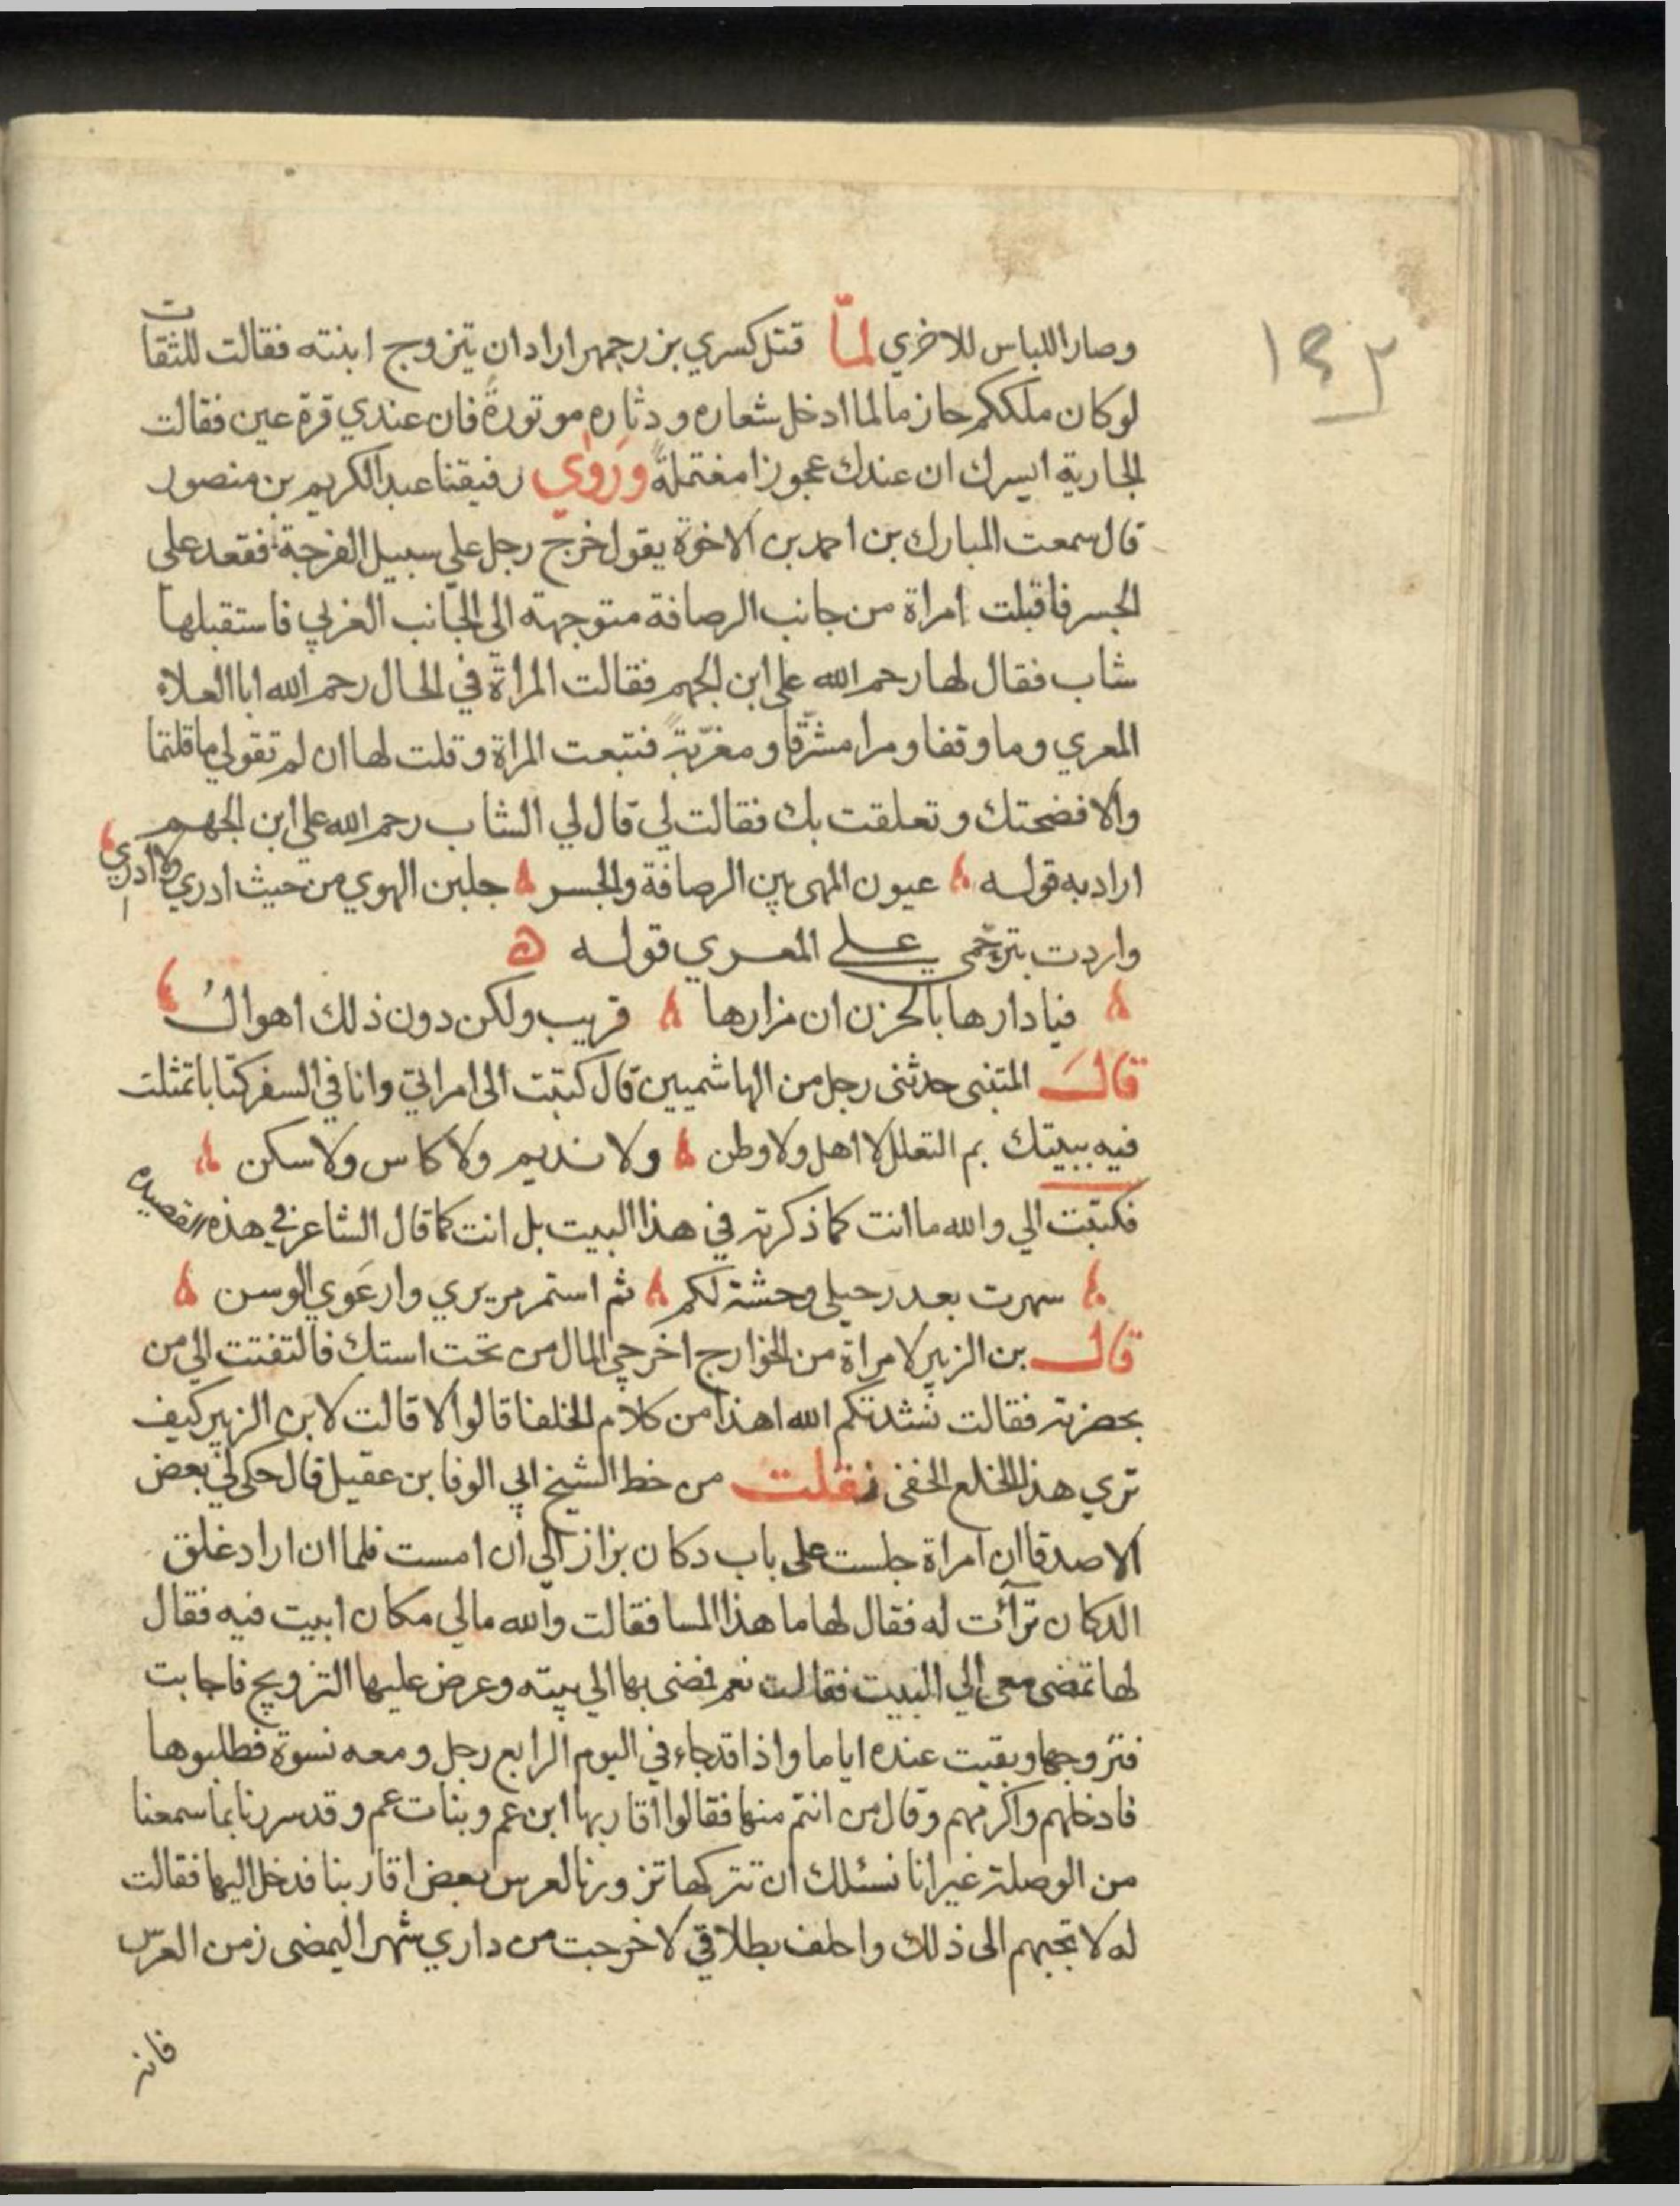 ١٤٢
وصار اللباس للاخري لمّا قتل كسري بزرجمهر اراد ان يتزوج ابنته فقالت للثقات
لو كان ملككم حازما لما ادخل شعاره ودثاره موتورةً فان عندي قرة عين فقالت
الجارية ايسرك ان عندك عجوزا مغتملةً وَرَوٰي رفيقنا عبد الكريم بن منصور
قال سمعت المبارك بن احمد بن الاخوة يقول خرج رجل علي سبيل الفرجة فقعد على
الجسر فاقبلت امراة من جانب الرصافة متوجهة الي الجانب الغربي فاستقبلها
شاب فقال لها رحم الله علي ابن الجهم فقالت المراة في الحال رحم الله ابا العلاء
المعري وما وقفا ومرا مشرّقا ومغرّبةً فتبعت المراة وقلت لها ان لم تقولي ما قلتما
والا فضحتك وتعلقت بك فقالت لي قال لي الشاب رحم الله علي ابن الجهم
اراد به قوله عيون المهى بين الرصافة والجسر جلبن الهوي من حيث ادري ولا ادري
واردت بترحّمى علي المعري قوله
فيا دارها بالحزن ان مزارها قريب ولكن دون ذلك اهوالُ
قالَ المتنبى حدثنى رجل من الهاشميين قال كتبت الى امراتي وانا في السفر كتابا تمثلت
فيه ببيتك بم التعلل لا اهل ولا وطن ولا نديم ولا كاس ولا سكن
فكتبت الي والله ما انت كما ذكرته في هذا البيت بل انت كما قال الشاعر في هذه القصيدة
سهرت بعد رحيلي وحشة لكم ثم استمر مريري وارعَوي الوسن
قال بن الزبير لامراة من الخوارج اخرجي المال من تحت استك فالتفتت الي من
بحضرته فقالت نشدتكم الله اهذا من كلام الخلفا قالوا لا قالت لابن الزبير كيف
تري هذا الخلع الخفى نقلت من خط الشيخ ابي الوفا بن عقيل قال حكى لي بعض
الاصدقا ان امراة جلست على باب دكان بزاز الي ان امست فلما ان اراد غلق
الدكان ترآئت له فقال لها ما هذا المسا فقالت والله مالي مكان ابيت فيه فقال
لها تمضى معى الي البيت فقالت نعم فمضى بها الي بيته وعرض عليها التزويج فاجابت
فتزوجها وبقيت عنده اياما واذا قد جاء في اليوم الرابع رجل ومعه نسوة فطلبوها
فادخلهم واكرمهم وقال من انتم منها فقالوا اقاربها ابن عم وبنات عم وقد سررنا بما سمعنا
من الوصلة غير انا نسئلك ان تتركها تزورنا لعرس بعض اقاربنا فدخل اليها فقالت
له لا تجبهم الى ذلك واحلف بطلاقي لا خرجت من داري شهرا ليمضى زمن العرس
فانه